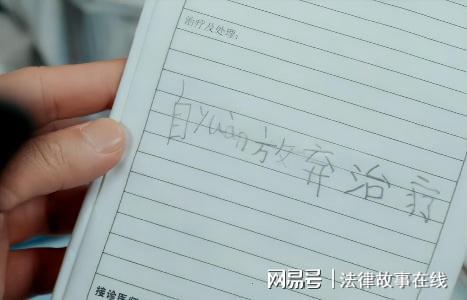 治疗及处理:
自yuàn放弃治疗
接诊医师
网易号 法律故事在线